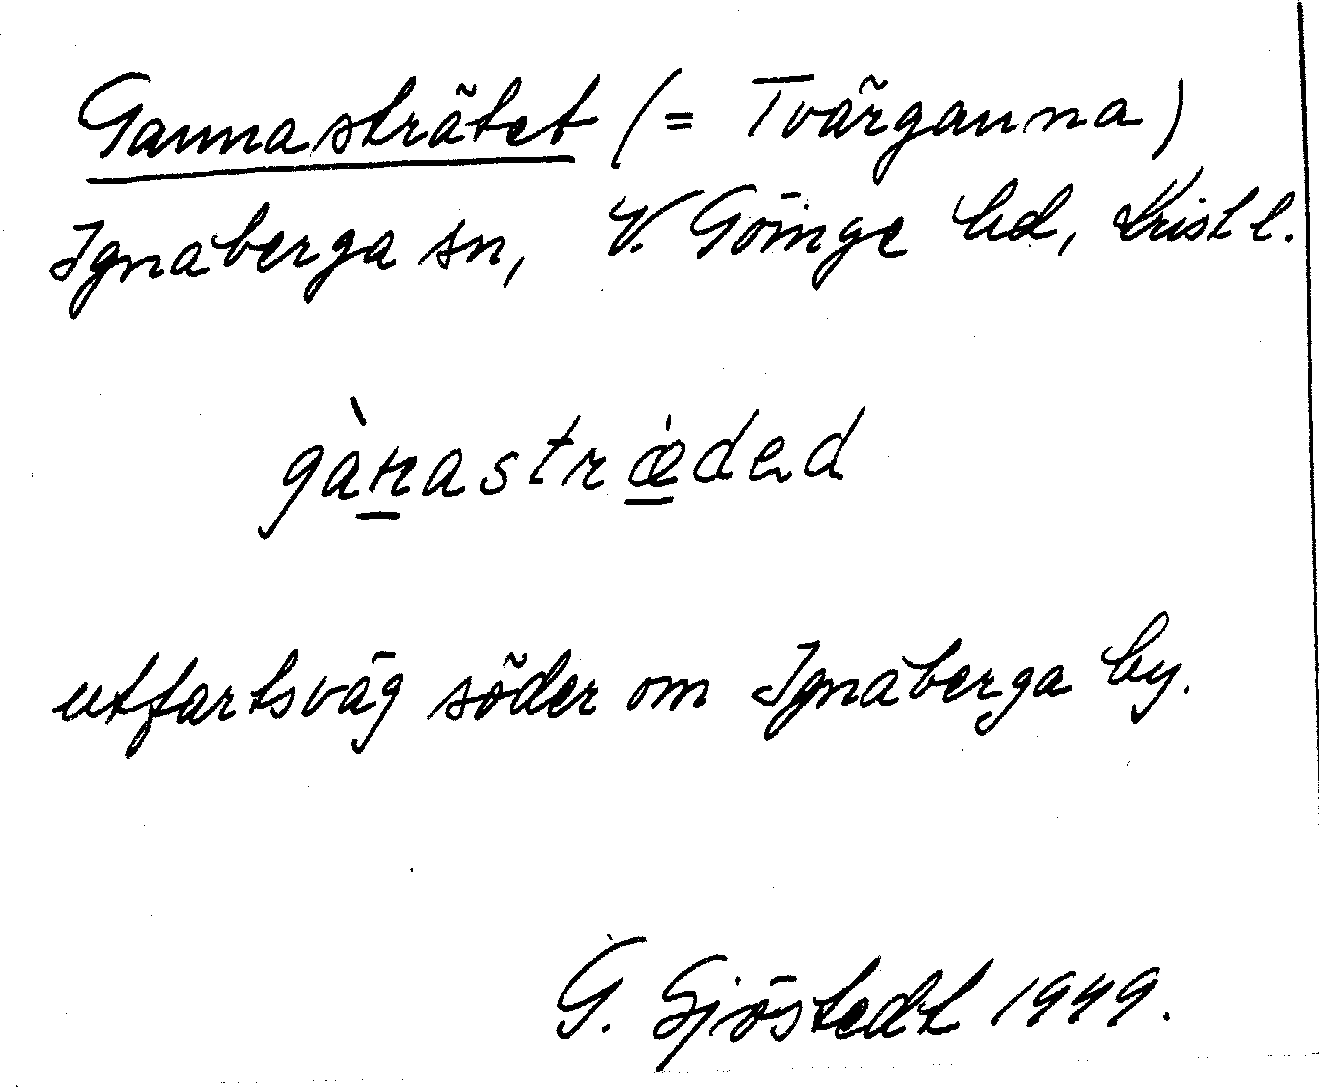 Gannasträtet (= Tvärganna)
Ignaberga sn, V. Göinge hd, Krist l.
gànastræ̀ded
utfartsväg söder om Ignaberga by.
G. Sjöstedt 1949.